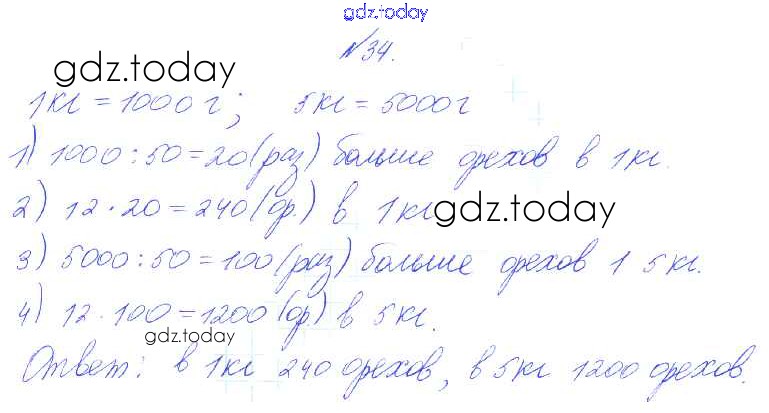 gdz.today
№34.
gdz.today
1кг = 1000г; 5кг = 5000г
1) 1000:50=20(раз) больше орехов в 1кг.
2) 12·20=240(ор.) в 1кг
gdz.today
3) 5000:50=100(раз) больше орехов 1 5кг.
4) 12·100=1200(ор.) в 5кг.
gdz.today
Ответ: в 1кг 240 орехов, в 5кг 1200 орехов.